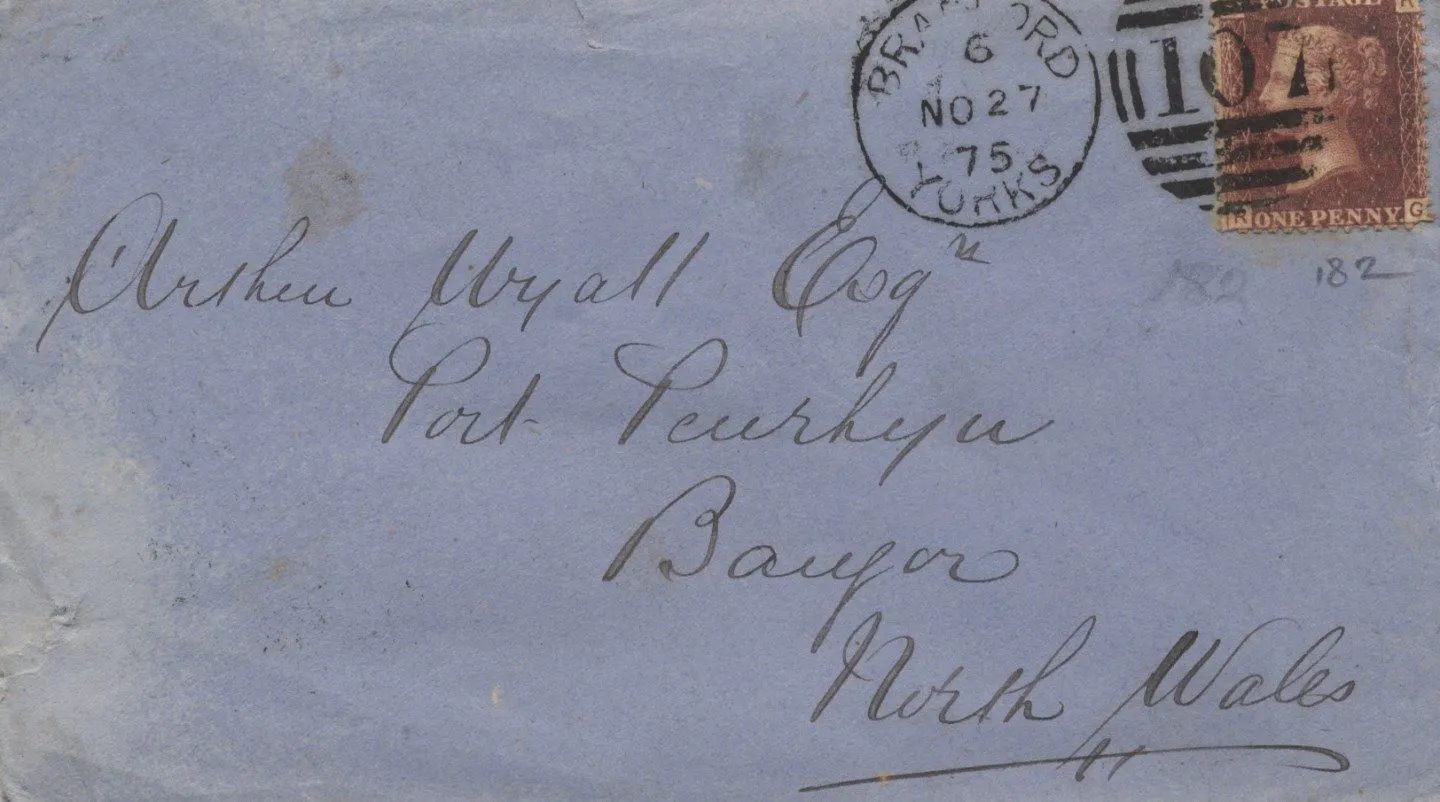 BRADFORD
6
NO 27
75
YORKS
107
POSTAGE
R
ONE PENNY
R G
182
182
Arthur Wyatt Esqr
Port Penrhyn
Bangor
North Wales